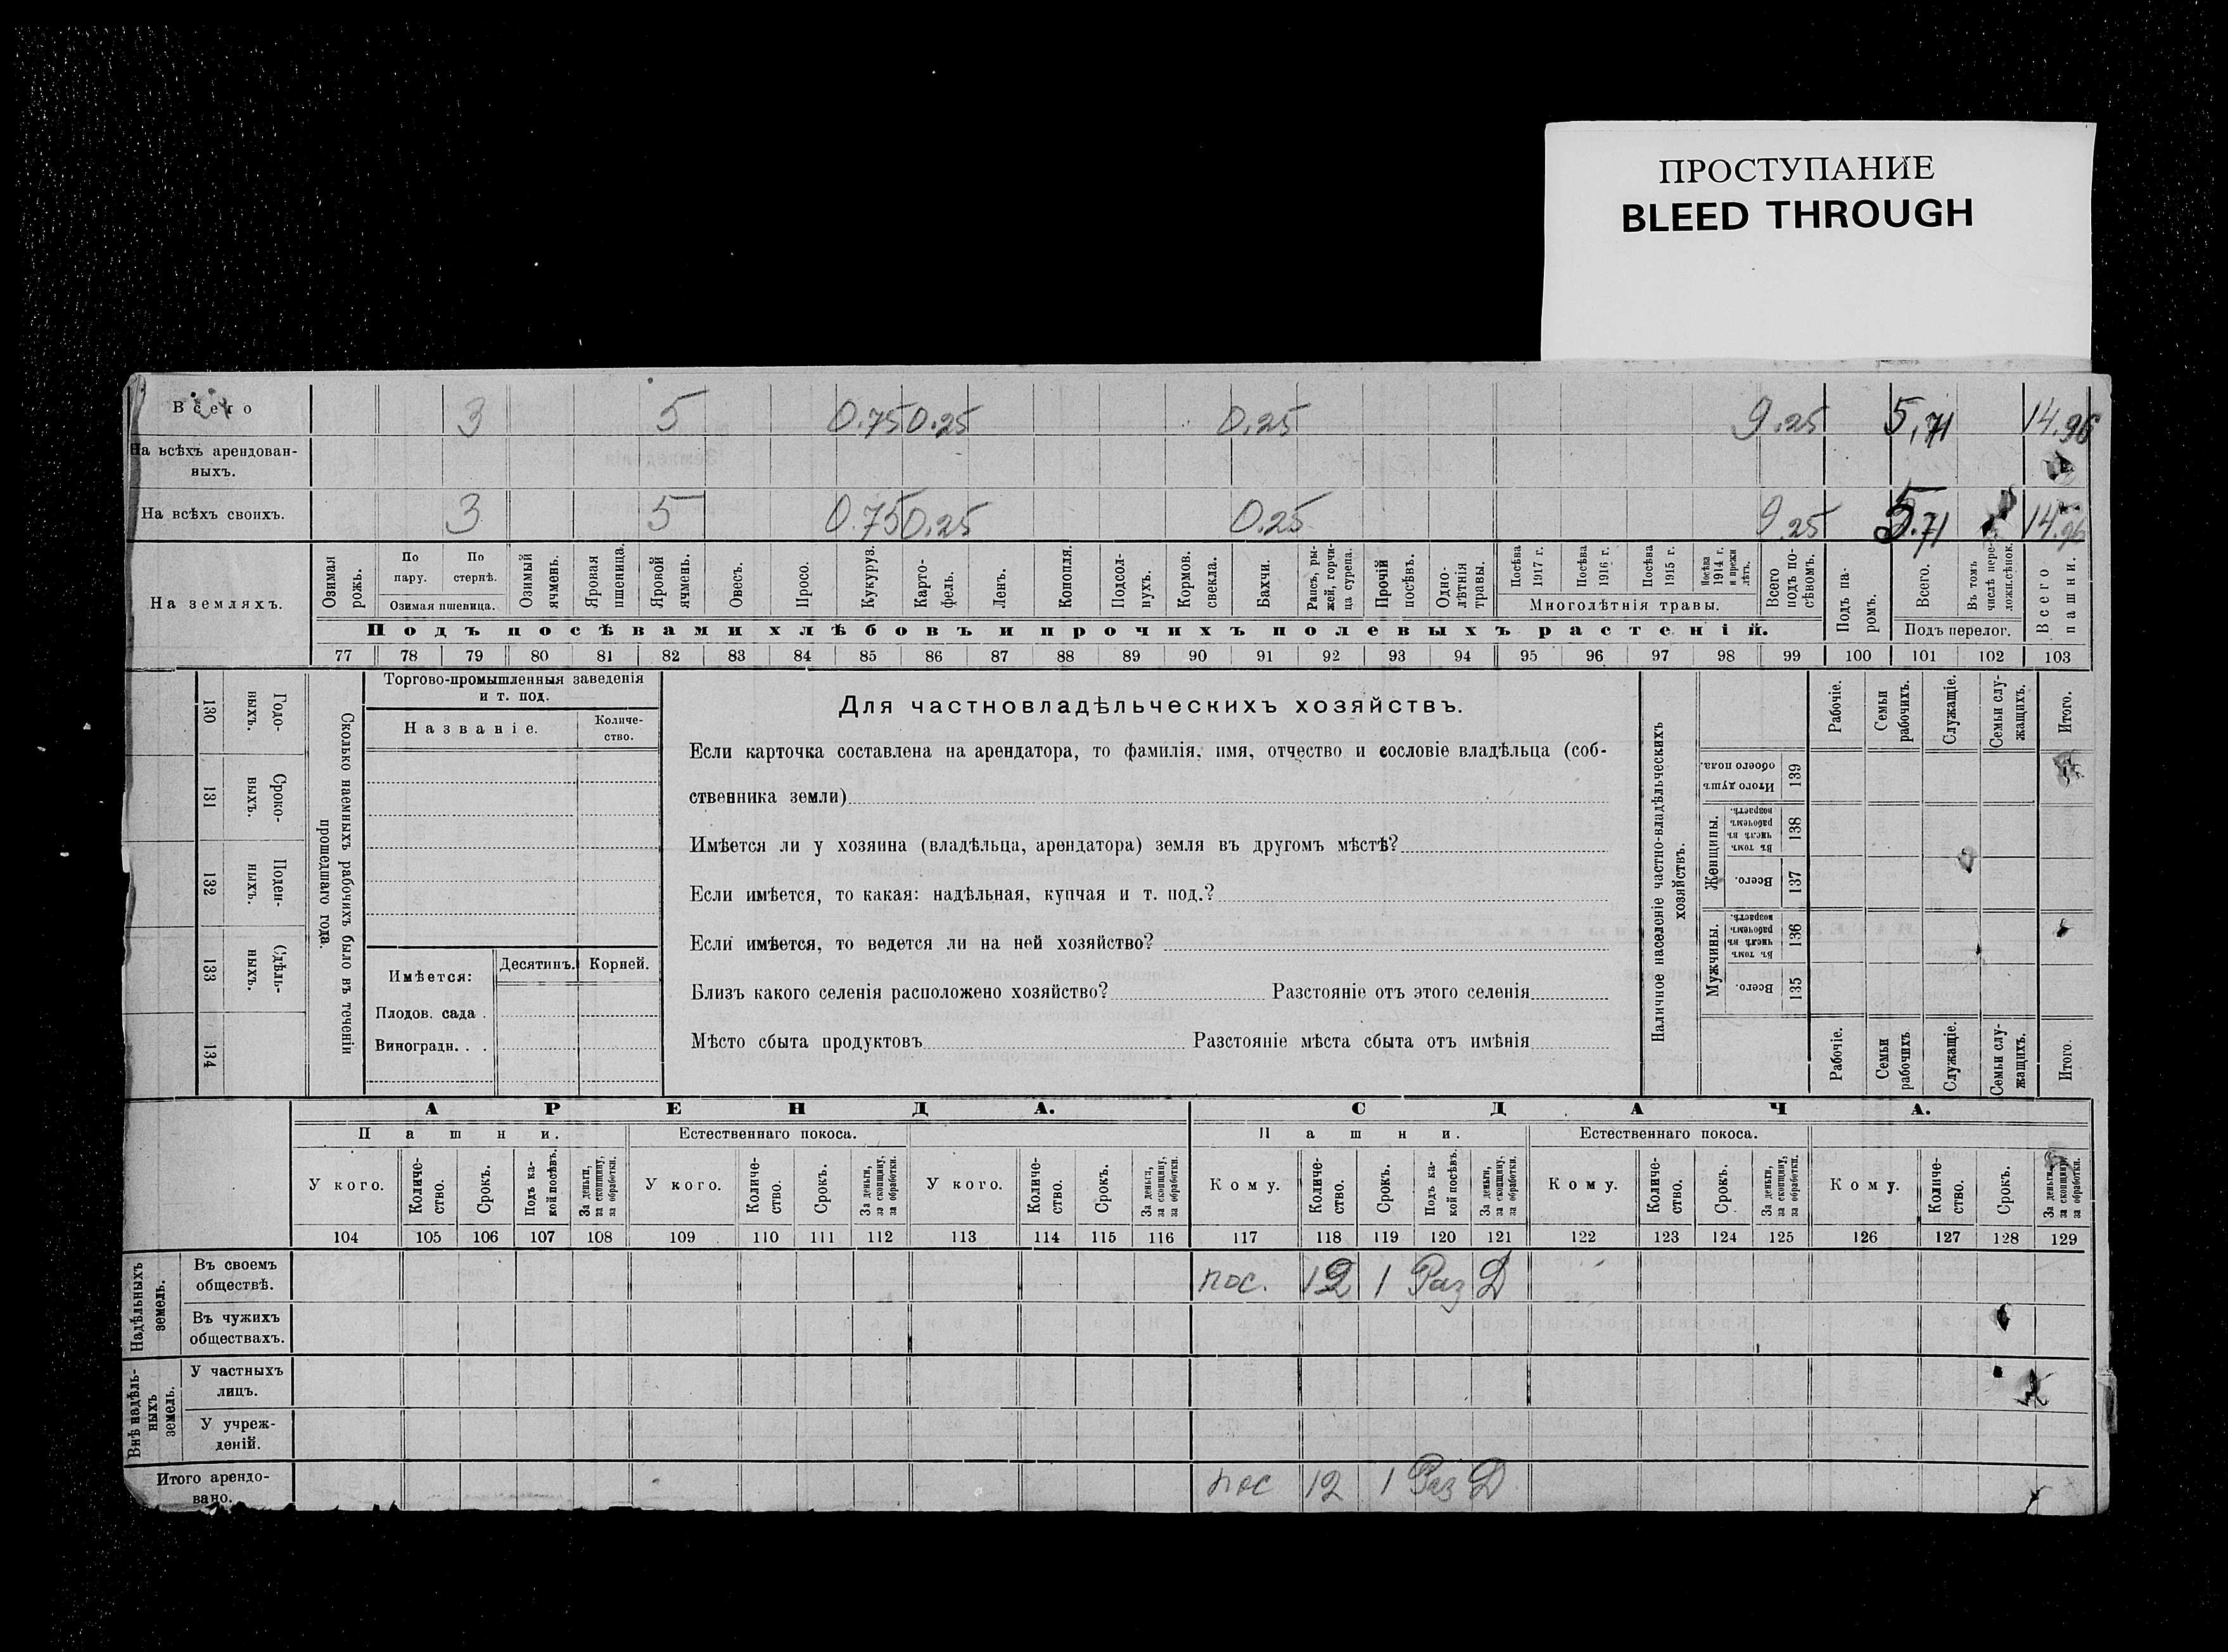 ПРОСТУПАНИЕ
BLEED THROUGH
Всего 3 5 0.75 0.25 0.25 9.25 5,71 14.96
На всѣхъ арендован-
ныхъ.
На всѣхъ своихъ. 3 5 0.75 0.25 0.25 9.25 5.71 14.96
На земляхъ.
Озимая рожь.
По пару.
По стернѣ.
Озимая пшеница.
Озимый ячмень.
Яровая пшеница.
Яровой ячмень.
Овесъ.
Просо.
Кукуруз.
Карто-
фель.
Ленъ.
Конопля.
Подсол-
нухъ.
Кормов. свекла.
Бахчи.
Рапсъ, ры-
жей, горчи-
ца сурепа.
Прочій посѣвъ.
Одно-
лѣтнія травы.
Посѣва 1917 г.
Посѣва 1916 г.
Посѣва 1915 г.
Посѣва 1914 г. и прежн лѣтъ.
Многолѣтнія травы.
Всего подъ по-
сѣвомъ.
Подъ посѣвами хлѣбовъ и прочихъ полевыхъ растеній.
Подъ па-
ромъ.
Всего.
Въ томъ числѣ пере-
ложн.сѣнок.
Подъ перелог.
Всего пашни.
77 78 79 80 81 82 83 84 85 86 87 88 89 90 91 92 93 94 95 96 97 98 99 100 101 102 103
130 Годо-
выхъ.
131 Сроко-
выхъ.
132 Поден-
ныхъ.
133 Сдѣль-
ныхъ.
134
Сколько наемныхъ рабочихъ было въ теченіи
прошедшаго года.
Торгово-промышленныя заведенія
и т. под.
Названіе.
Количе-
ство.
Имѣется:
Десятинъ. Корней.
Плодов. сада .
Виноградн. . .
Для частновладѣльческихъ хозяйствъ.
Если карточка составлена на арендатора, то фамилія, имя, отчество и сословіе владѣльца (соб-
ственника земли)
Имѣется ли у хозяина (владѣльца, арендатора) земля въ другомъ мѣстѣ?
Если имѣется, то какая: надѣльная, купчая и т. под.?
Если имѣется, то ведется ли на ней хозяйство?
Близъ какого селенія расположено хозяйство? Разстояніе отъ этого селенія
Мѣсто сбыта продуктовъ Разстояніе мѣста сбыта отъ имѣнія
Наличное населеніе частно-владѣльческихъ
хозяйствъ.
Рабочіе.
Семьи рабочихъ.
Служащіе.
Семьи слу-
жащихъ.
Итого.
Итого душъ обоего пола. 139
Женщины.
Въ томъ числѣ въ рабочемъ возрастѣ. 138
Всего. 137
Мужчины.
Въ томъ числѣ въ рабочемъ возрастѣ. 136
Всего. 135
Рабочіе.
Семьи рабочихъ
Служащіе.
Семьи слу-
жащихъ.
Итого.
АРЕНДА. СДАЧА.
Пашни. Естественнаго покоса. Пашни. Естественнаго покоса.
У кого.
Количе-
ство.
Срокъ.
Подъ ка-
кой посѣвъ.
За деньги, за скопщину, за обработки.
У кого.
Количе-
ство.
Срокъ.
За деньги, за скопщину, за обработки.
У кого.
Количе-
ство.
Срокъ.
За деньги, за скопщину, за обработки.
Кому.
Количе-
ство.
Срокъ.
Подъ ка-
кой посѣвъ.
За деньги, за скопщину, за обработки.
Кому.
Количе-
ство.
Срокъ.
За деньги, за скопщину, за обработки.
Кому.
Количе-
ство.
Срокъ.
За деньги, за скопщину, за обработки.
104 105 106 107 108 109 110 111 112 113 114 115 116 117 118 119 120 121 122 123 124 125 126 127 128 129
Надѣльныхъ земель.
Въ своемъ
обществѣ. пос. 12 1 Раз Д
Въ чужихъ
обществахъ.
Внѣ надѣль-
ныхъ земель.
У частныхъ
лицъ.
У учреж-
деній.
Итого арендо-
вано. пос 12 1 Раз Д